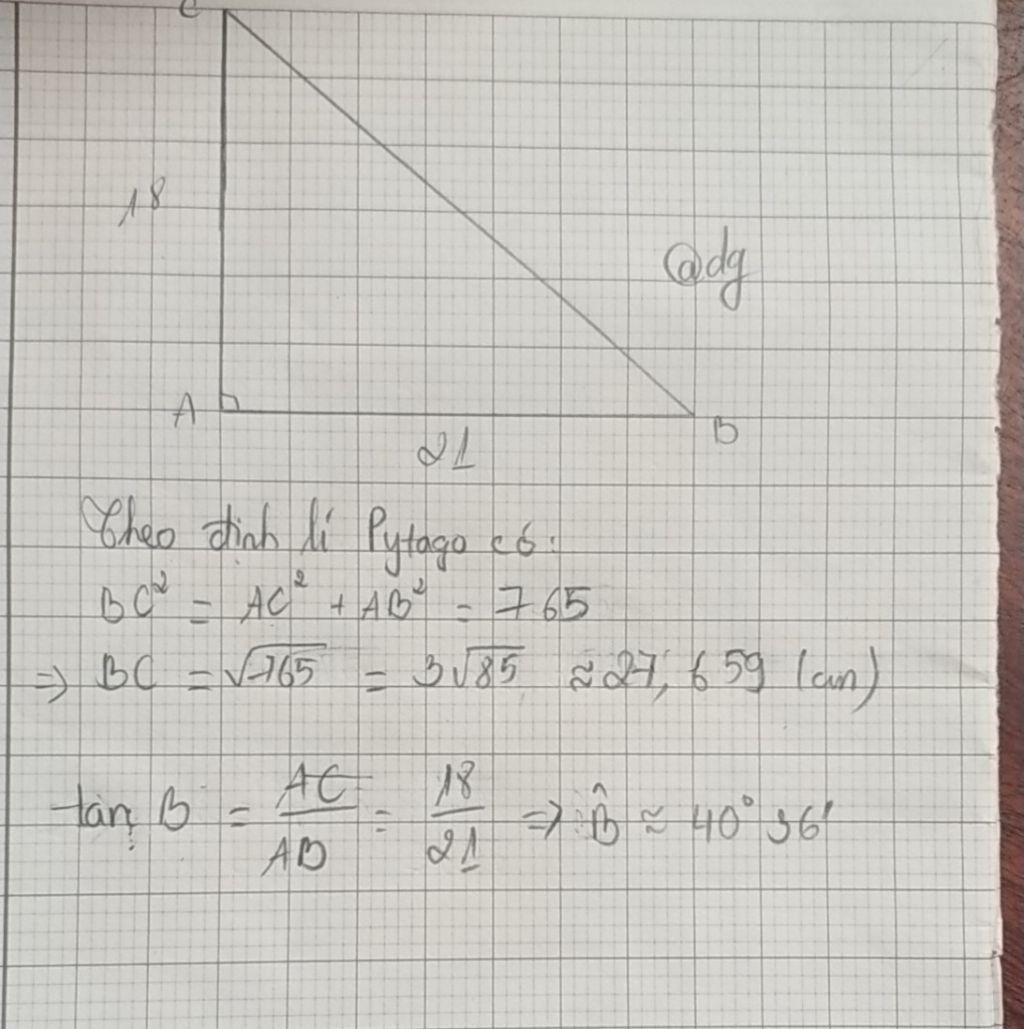 C
18
@dg
A
B
21
Theo định lí Pytago có:
BC² = AC² + AB² = 765
=> BC = √765 = 3√85 ≈ 27,659 (cm)
tan B = AC/AB = 18/21 => B̂ ≈ 40° 36'